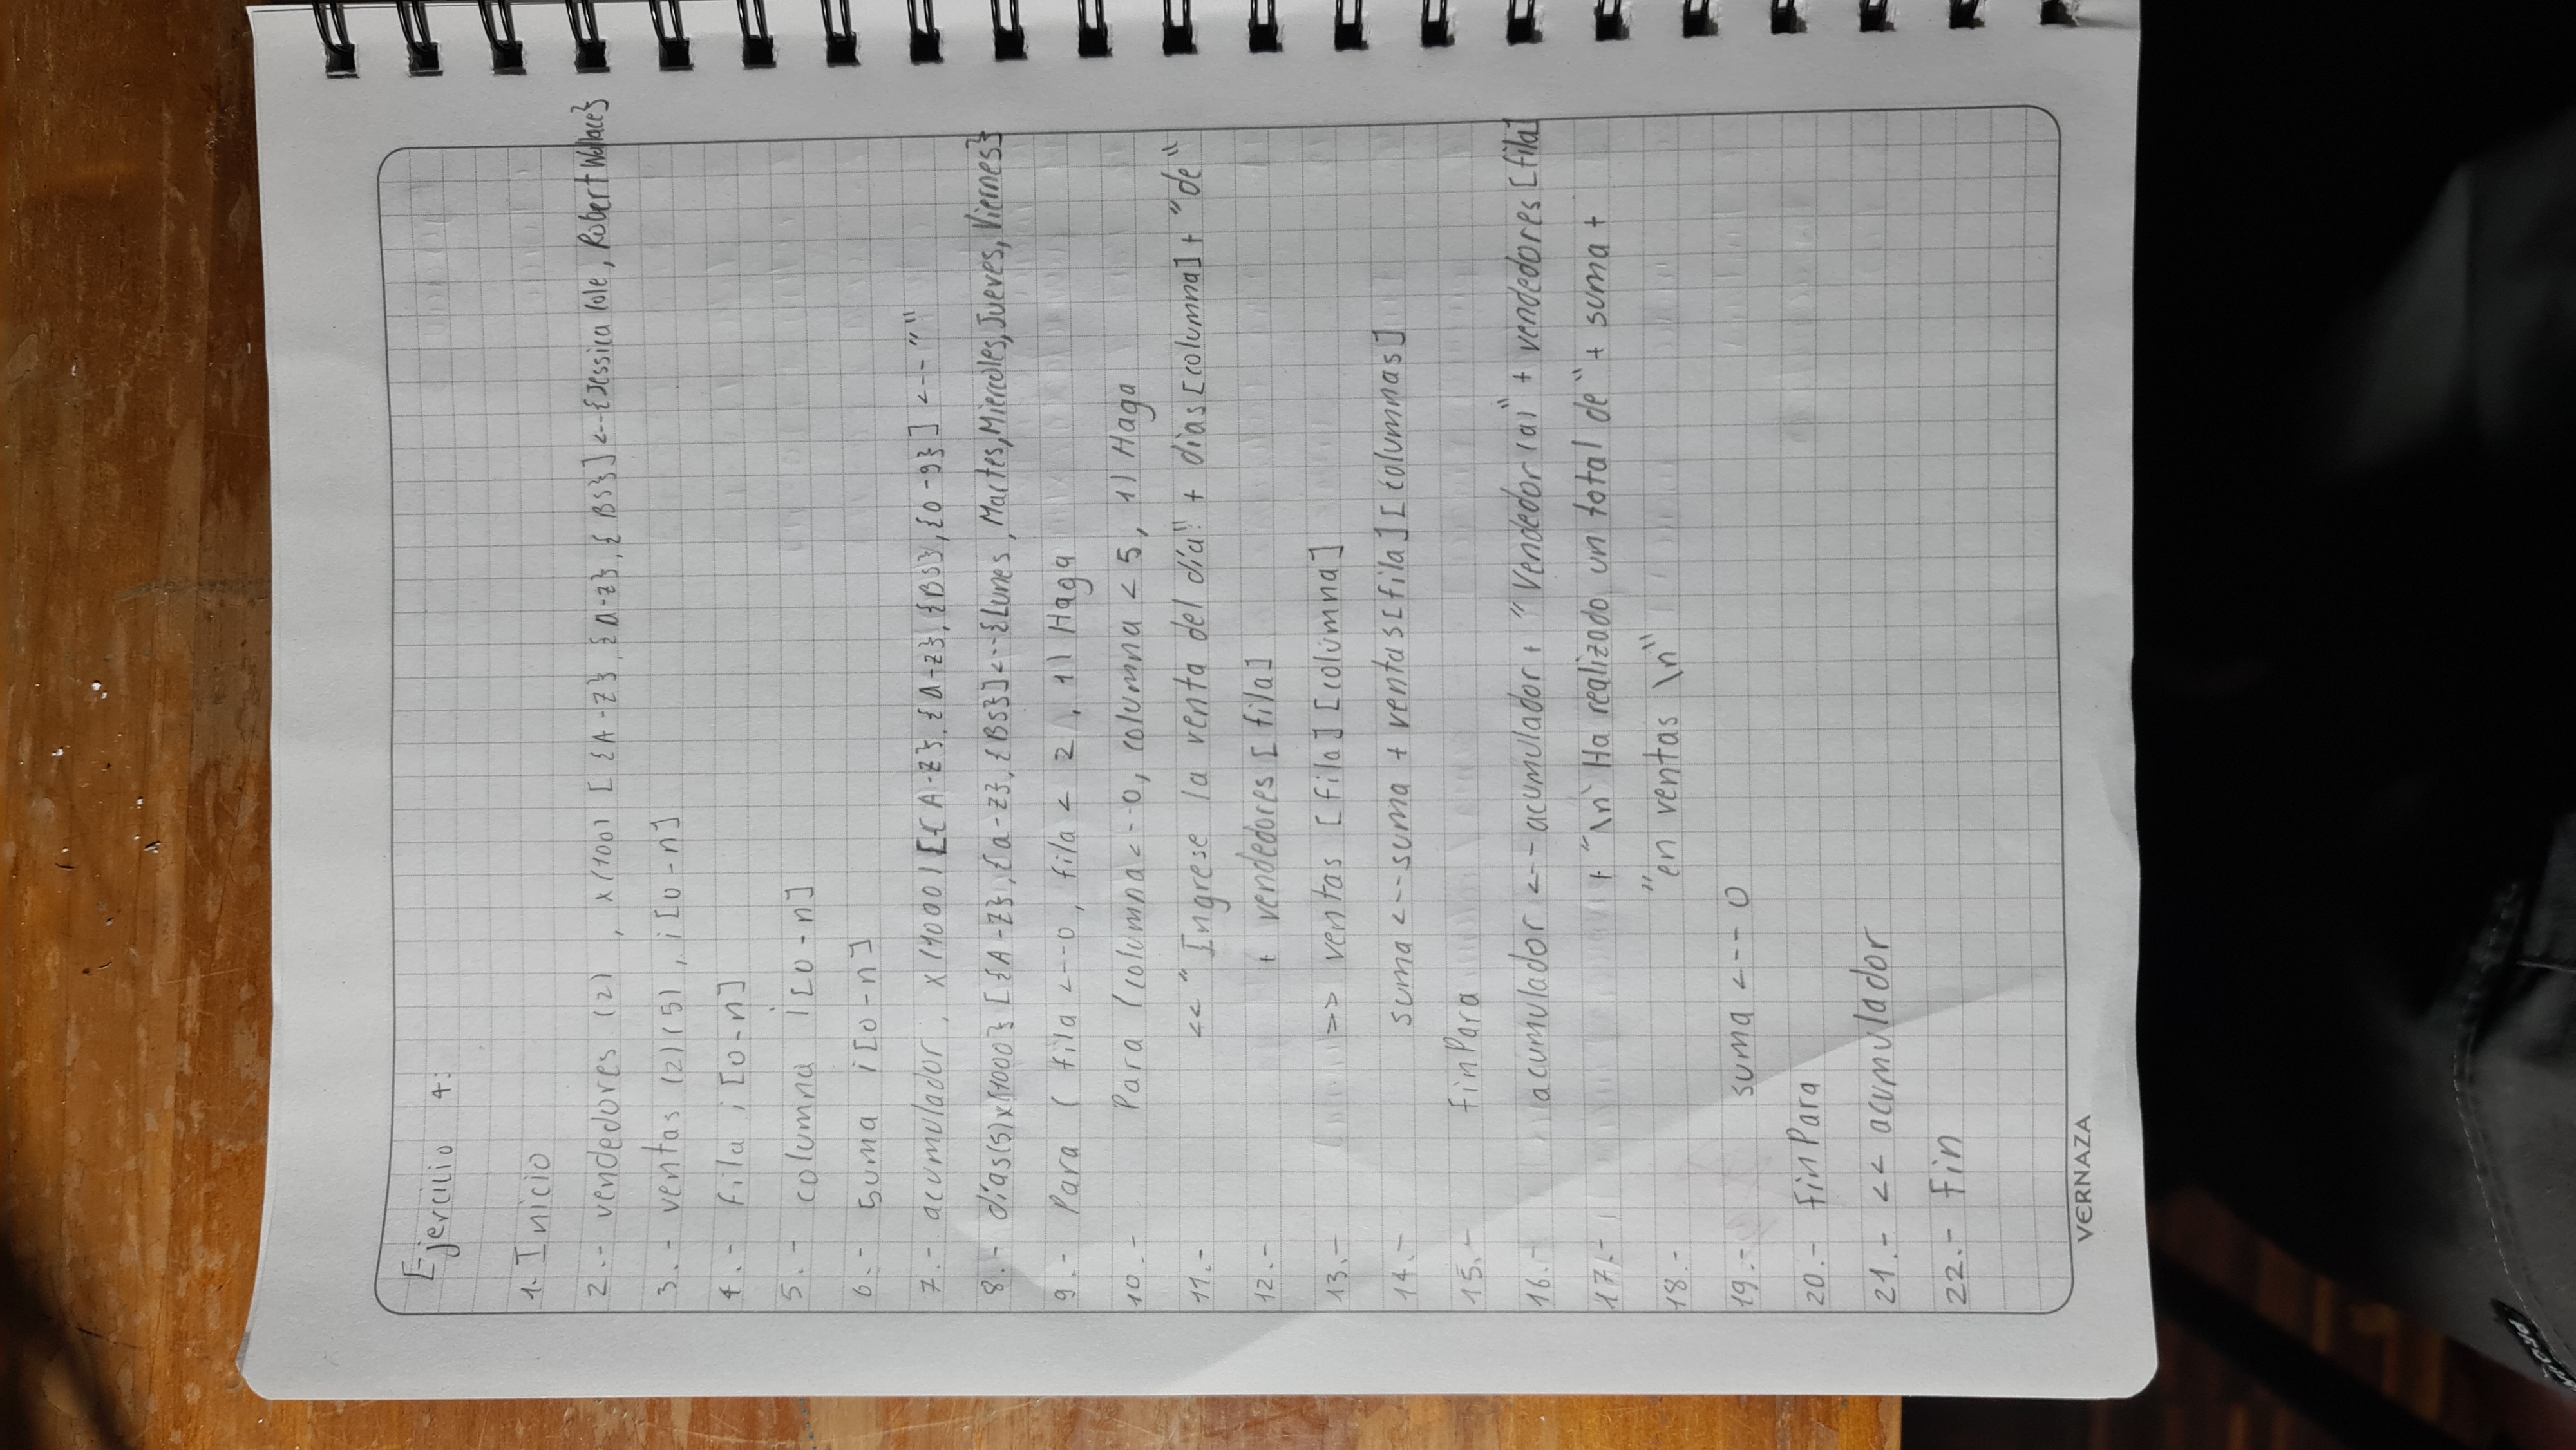 Ejercicio 4:
1.- Inicio
2.- vendedores (2) , x(100) [ {A-Z}, {a-z}, { BS} ] <--{Jessica Cole, Robert Wallace}
3.- ventas (2)(5), i[0-n]
4.- fila i [0-n]
5.- columna i[0-n]
6.- suma i[0-n]
7.- acumulador, x(1000) [{A-Z}, {a-z}, {BS}, {0-9}] <-- ""
8.- días(5)x{1000} [{A-Z}, {a-z}, {BS}]<--{Lunes, Martes, Miercoles, Jueves, Viernes}
9.- Para ( fila <--0, fila < 2, 1) Haga
10.- Para (columna<--0, columna < 5, 1) Haga
11.- << "Ingrese la venta del día" + dias[columna] + "de"
12.- + vendedores [fila]
13.- >> ventas [fila] [columna]
14.- suma <--suma + ventas[fila][columnas]
15.- finPara
16.- acumulador <-- acumulador + "Vendedor(a)" + vendedores [fila]
17.- + "\n Ha realizado un total de" + suma +
18.- "en ventas \n"
19.- suma <-- 0
20.- finPara
21.- << acumulador
22.- fin
VERNAZA